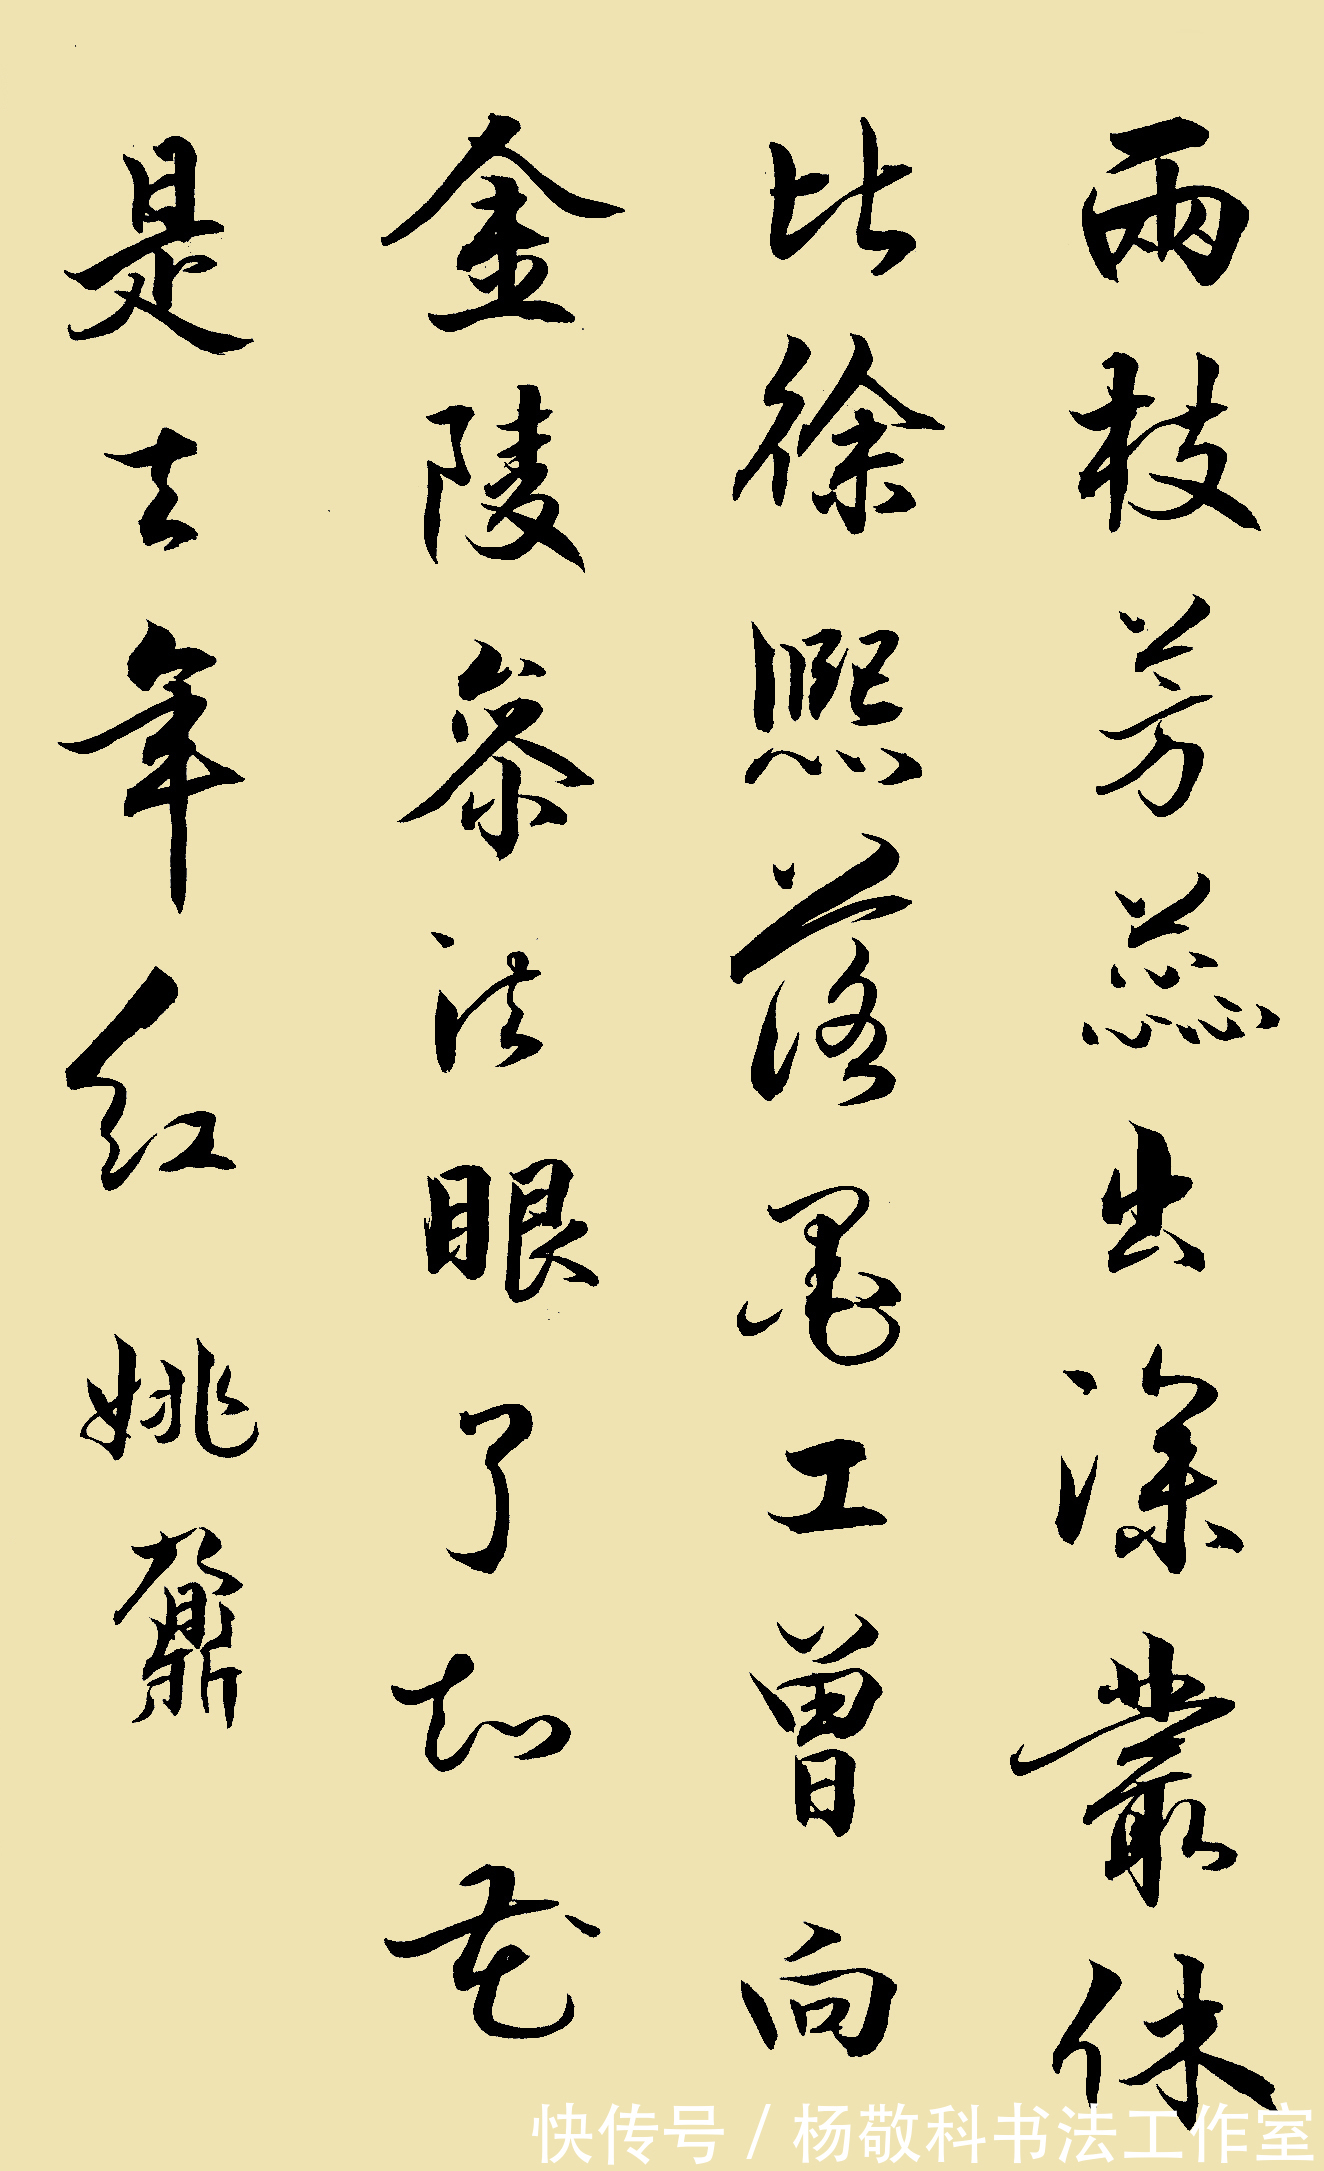 兩枝芳蕊出深叢休
比徐熙落墨工曾向
金陵參法眼了知花
是去年紅 姚鼐
快传号 / 杨敬科书法工作室